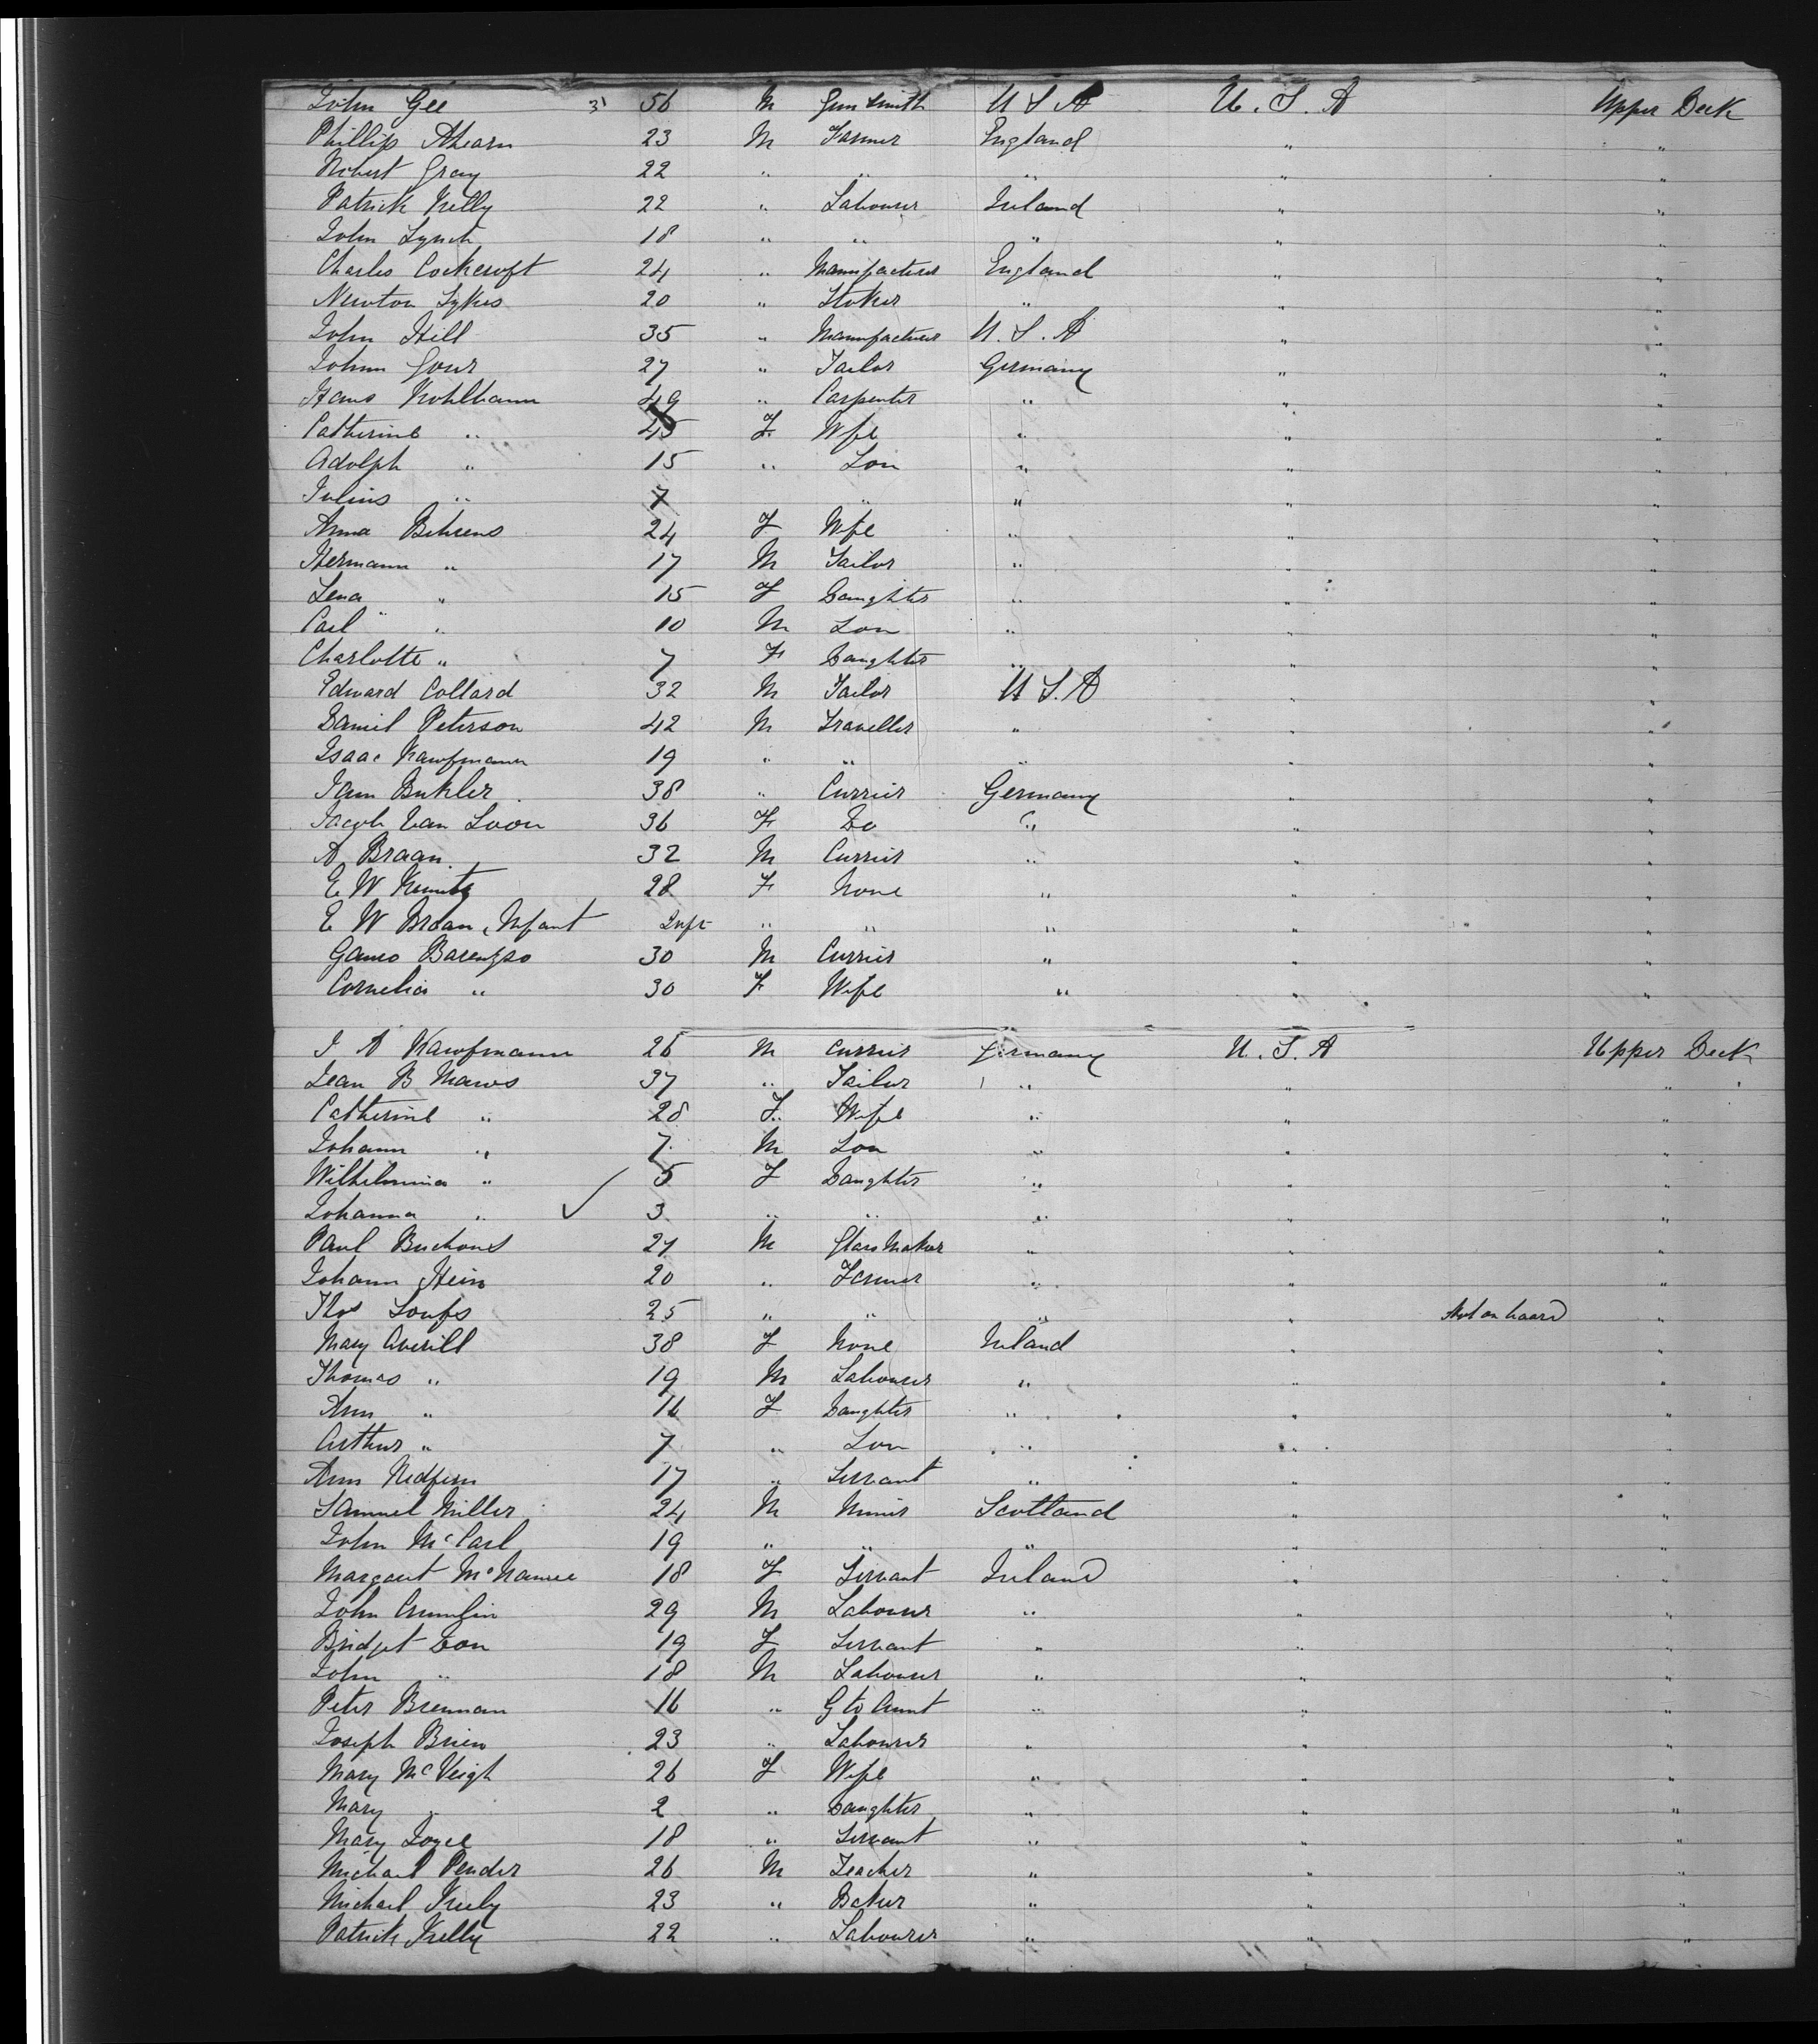 John Gee 31 56 M Gun Smith U S A U. S. A Upper Deck
Phillip Ahearn 23 M Farmer England " "
Robert Gray 22 " " " " "
Patrick Kelly 22 " Labourer Ireland " "
John Lynch 18 " " " " "
Charles Cockcroft 24 " Manufacturer England " "
Newton Sykes 20 " Stoker " " "
John Hill 35 " Manufacturer U. S. A " "
Johann 27 " Tailor Germany " "
Hans Kohlhann 49 " Carpenter " " "
Catherine " 45 F Wfe " " "
Adolph " 15 " Son " " "
Julius " 7 " " " "
Anna Behrens 24 F Wfe " " "
Hermann " 17 M Tailor " " "
Lena " 15 F Daughter " " "
Carl " 10 M Son " " "
Charlotte " 7 F Daughter " " "
Edward Collard 32 M Tailor U S. A " "
Daniel Peterson 42 M Traveller " " "
Isaac Kaufmann 19 " " " " "
38 " Currier Germany " "
Jacob Van Loon 36 F Do " " "
A Braan 32 M Currier " " "
E W 28 F None " " "
E W Braan, Infant Inft " " " " "
Barentzso 30 M Currier " " "
Cornelia " 30 F Wife " " "
J A Kaufmann 26 M Currier Germany U. S. A Upper Deck
Jean B Maros 37 " Tailor " " "
Catherine " 28 F Wife " " "
Johann " 7 M Son " " "
Wilhelmina " 5 F Daughter " " "
Johanna " ✓ 3 " " " " "
Paul 27 M Glass Maker " " "
Johann Hein 20 " Farmer " " "
Thos 25 " " " " Not on board "
Mary Averill 38 F None Ireland " "
Thomas " 19 M Labourer " " "
Ann " 16 F Daughter " " "
Arthur " 7 " Son " " "
Ann Redfern 17 " Servant " " "
Samuel Miller 24 M Miner Scotland " "
John McCarl 19 " " " " "
Margaret McNamee 18 F Servant Ireland " "
John Crumlin 29 M Labourer " " "
Bridget Don 19 F Servant " " "
John " 18 M Labourer " " "
Peter Brennan 16 " G to Aunt " " "
Joseph Brien 23 " Labourer " " "
Mary McVeigh 26 F Wife " " "
Mary " 2 " Daughter " " "
Mary Joyce 18 " Servant " " "
Michael Pender 26 M Teacher " " "
Michael 23 " Baker " " "
Patrick Kelly 22 " Labourer " " "